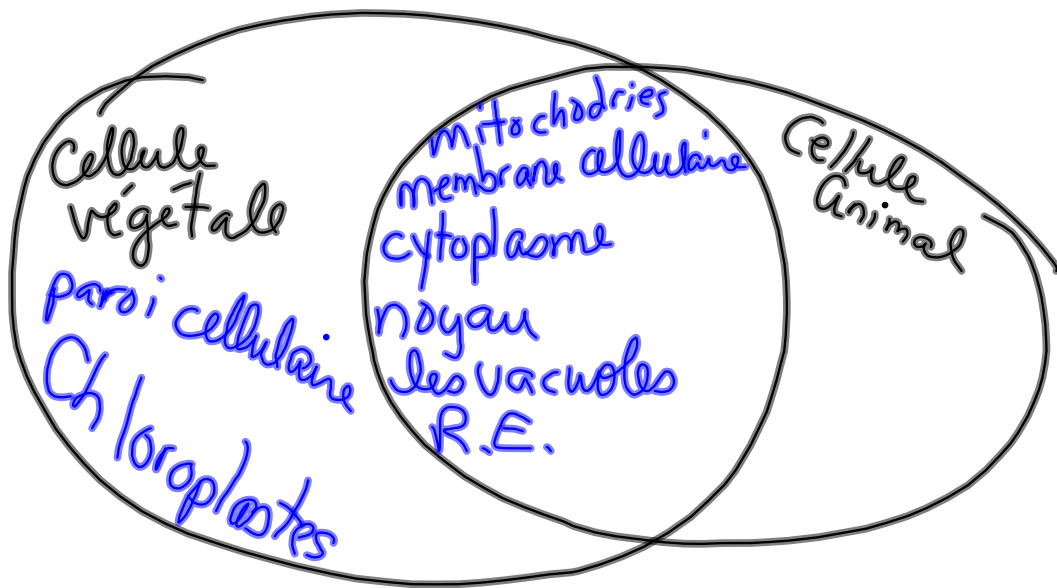 Cellule
végétale
paroi cellulaire
Chloroplastes
mitochodries
membrane cellulaire
cytoplasme
noyau
les vacuoles
R.E.
Cellule
Animal